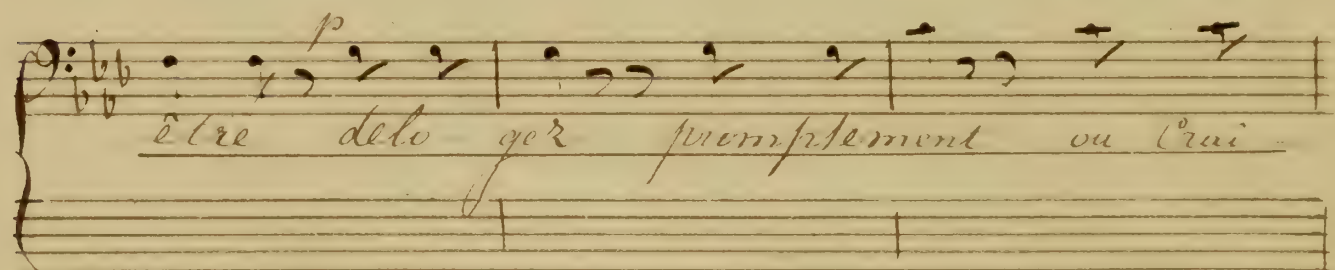 p
être delo gez promptement ou Crai